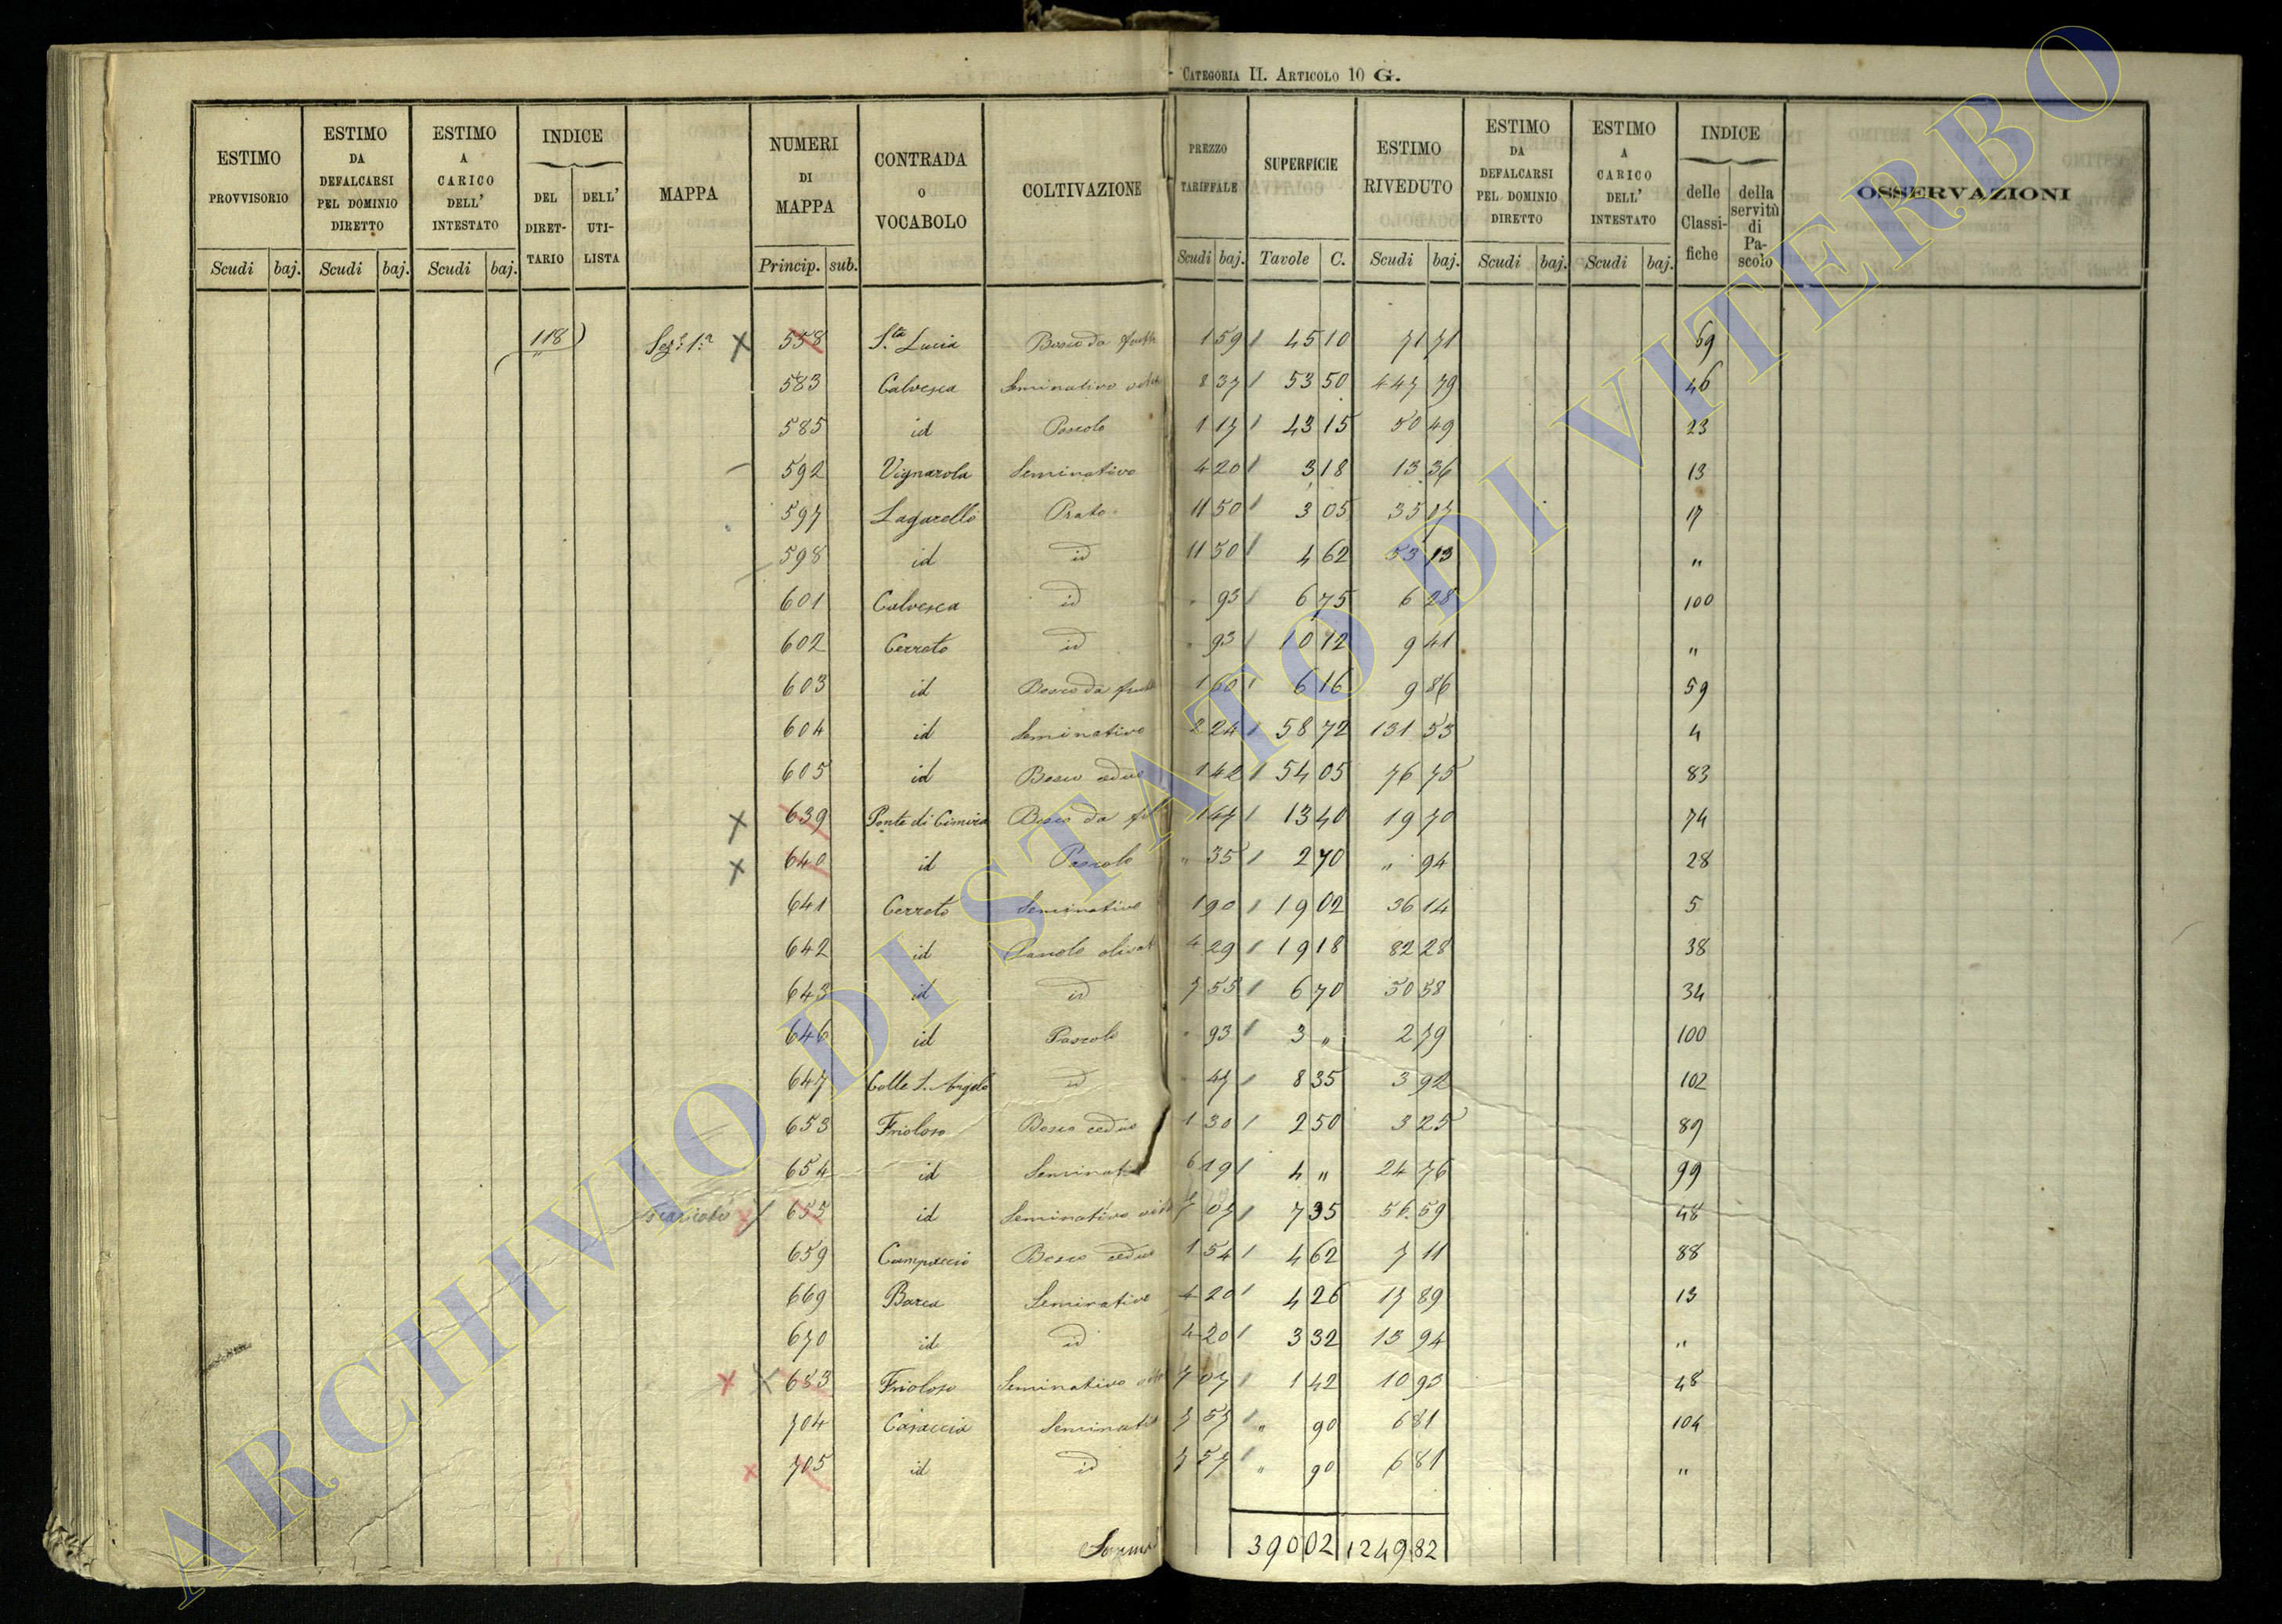 CATEGORIA II. ARTICOLO 10 G.
ESTIMO PROVVISORIO | ESTIMO DA DEFALCARSI PEL DOMINIO DIRETTO | ESTIMO A CARICO DELL' INTESTATO | INDICE DEL DIRET- TARIO | DELL' UTI- LISTA | MAPPA | NUMERI DI MAPPA | CONTRADA O VOCABOLO | COLTIVAZIONE | PREZZO TARIFFALE | SUPERFICIE | ESTIMO RIVEDUTO | ESTIMO DA DEFALCARSI PEL DOMINIO DIRETTO | ESTIMO A CARICO DELL' INTESTATO | INDICE delle Classi- fiche | della servitù di Pa- scolo | OSSERVAZIONI
Scudi | baj. | Scudi | baj. | Scudi | baj. | Princip. | sub. | Scudi | baj. | Tavole | C. | Scudi | baj. | Scudi | baj. | Scudi | baj.
118 | Sez.e 1.a | 558 | S.ta Lucia | Bosco da frutto | 1 59 | 45 10 | 71 71 | 59
583 | Calvesca | Seminativo | 8 37 | 53 50 | 447 79 | 46
585 | id | Pascolo | 1 17 | 43 15 | 50 49 | 23
592 | Vignarola | Seminativo | 4 20 | 3 18 | 13 36 | 13
597 | Lagarello | Prato | 11 50 | 3 05 | 35 07 | 17
598 | id | id | 11 50 | 4 62 | 53 13 | "
601 | Calvesca | id | " 93 | 6 75 | 6 28 | 100
602 | Cerreto | id | " 93 | 10 12 | 9 41 | "
603 | id | Bosco da frutto | 1 60 | 6 16 | 9 86 | 59
604 | id | Seminativo | 2 24 | 58 72 | 131 53 | 4
605 | id | Bosco ceduo | 1 42 | 54 05 | 76 75 | 83
639 | Ponte di Cimira | Bosco da | 1 47 | 13 40 | 19 70 | 74
640 | id | Pascolo | " 35 | 2 70 | " 94 | 28
641 | Cerreto | Seminativo | 1 90 | 19 02 | 36 14 | 5
642 | id | Pascolo olivat | 4 29 | 19 18 | 82 28 | 38
643 | id | id | 7 55 | 6 70 | 50 58 | 34
646 | id | Pascolo | " 93 | 3 " | 2 79 | 100
647 | Colle S. Angelo | id | " 47 | 8 35 | 3 92 | 102
653 | Frioloso | Bosco ceduo | 1 30 | 2 50 | 3 25 | 89
654 | id | Seminativo | 6 19 | 4 " | 24 76 | 99
655 | id | Seminativo | 7 07 | 7 35 | 56 59 | 48
659 | Campaccio | Bosco ceduo | 1 54 | 4 62 | 7 11 | 88
669 | Barca | Seminativo | 4 20 | 4 26 | 17 89 | 13
670 | id | id | 4 20 | 3 32 | 13 94 | "
683 | Frioloso | Seminativo | 7 07 | 1 42 | 10 93 | 48
704 | Casaccia | Seminativo | 7 57 | " 90 | 6 81 | 104
705 | id | id | 7 57 | " 90 | 6 81 | "
Somma | 390 02 | 1249 82
ARCHIVIO DI STATO DI VITERBO